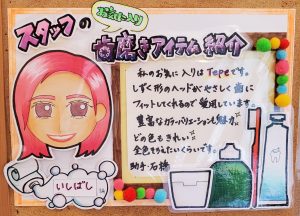 お気に入り
スタッフの
歯磨きアイテム紹介
私のお気に入りはTepeです。
しずく形のヘッドがやさしく歯に
フィットしてくれるので愛用しています。
豊富なカラーバリエーションも魅力
どの色もきれい
全色そろえたいくらいです。
助手・石橋
いしばし